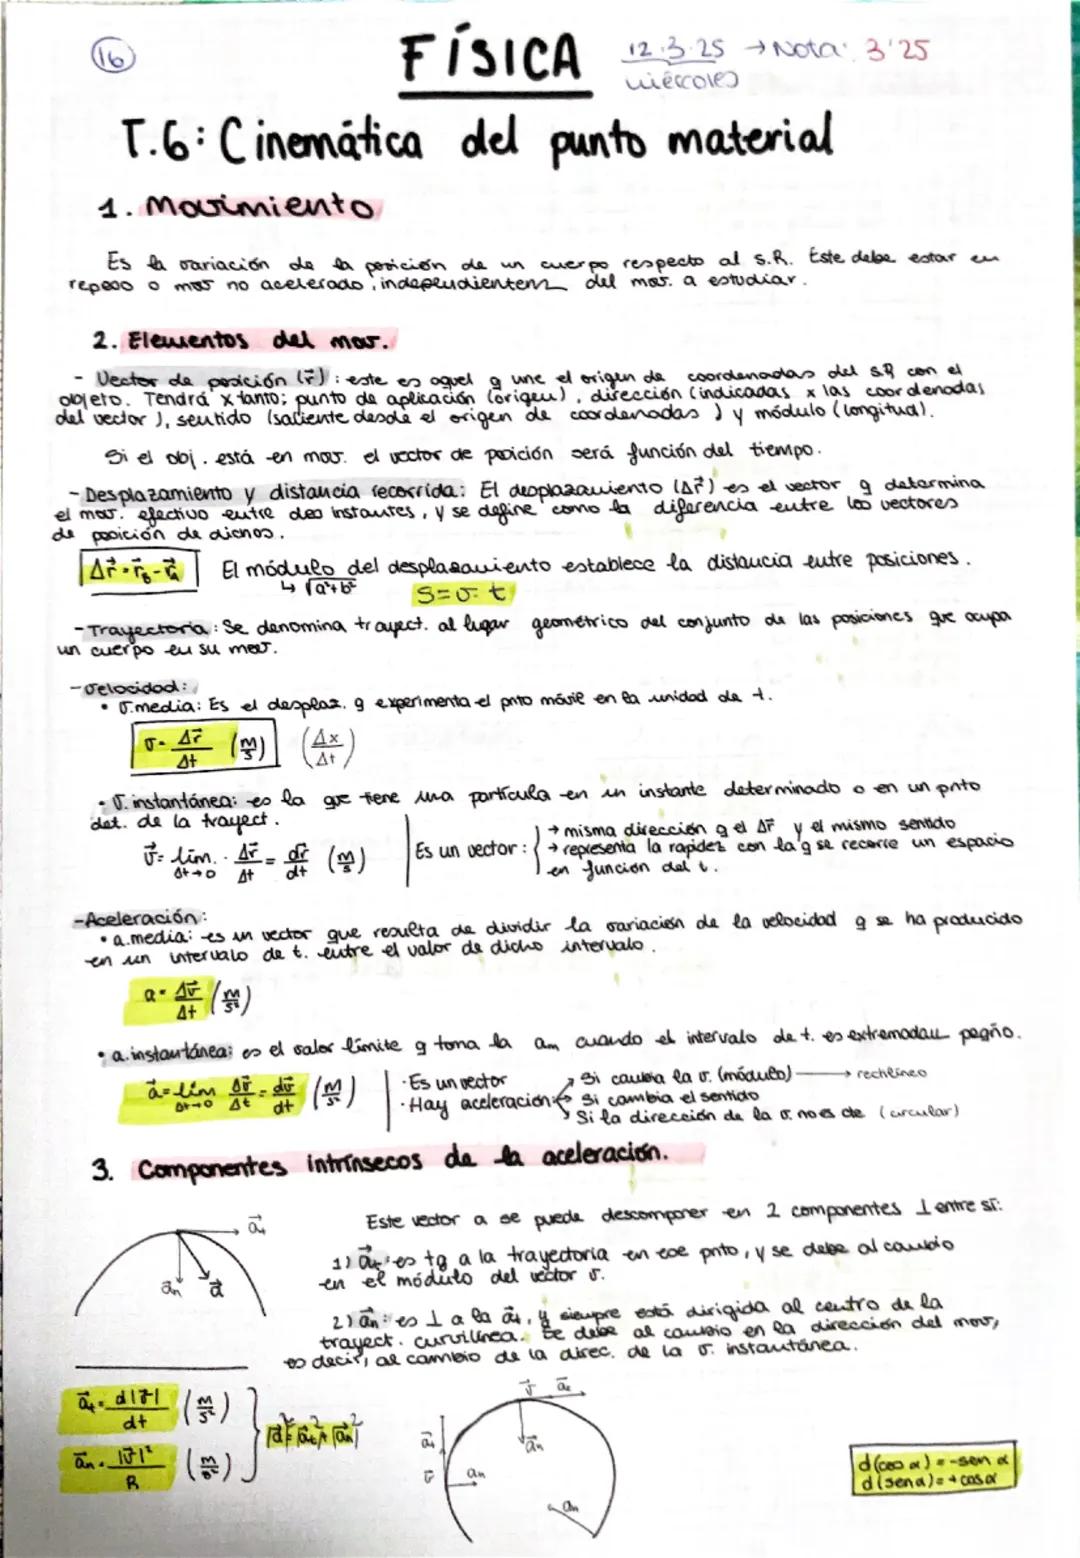 16
FÍSICA
12.3.25 → Nota: 3'25
miércoles
T.6: Cinemática del punto material
1. Movimiento
Es la variación de la posición de un cuerpo respecto al S.R. Éste debe estar en
reposo o mov no acelerado, independientem del mov. a estudiar.
2. Elementos del mov.
- Vector de posición (r⃗): este es aquel q une el origen de coordenadas del S.R con el
objeto. Tendrá x tanto; punto de aplicación (origen), dirección (indicadas x las coordenadas
del vector), sentido (saliente desde el origen de coordenadas) y módulo (longitud).
Si el obj. está en mov. el vector de posición será función del tiempo.
- Desplazamiento y distancia recorrida: El desplazamiento (Δr⃗) es el vector q determina
el mov. efectivo entre dos instantes, y se define como la diferencia entre los vectores
de posición de dichos.
Δr⃗ = r⃗B - r⃗A El módulo del desplazamiento establece la distancia entre posiciones.
↳ √a²+b² S = v · t
- Trayectoria: Se denomina trayect. al lugar geométrico del conjunto de las posiciones que ocupa
un cuerpo en su mov.
- Velocidad:
• v.media: Es el desplaz. q experimenta el pnto móvil en la unidad de t.
v = Δr⃗/Δt (m/s) (Δx/Δt)
• v. instantánea: es la que tiene una partícula en un instante determinado o en un pnto
det. de la trayect.
v⃗ = lím. Δt→0 Δr⃗/Δt = dr⃗/dt (m/s)
Es un vector: → misma dirección q el Δr⃗ y el mismo sentido
→ representa la rapidez con la q se recorre un espacio
en función del t.
- Aceleración:
• a.media: es un vector que resulta de dividir la variación de la velocidad q se ha producido
en un intervalo de t. entre el valor de dicho intervalo.
a = Δv⃗/Δt (m/s²)
• a.instantánea: es el valor límite q toma la am cuando el intervalo de t. es extremadam pegño.
a⃗ = lím Δt→0 Δv⃗/Δt = dv⃗/dt (m/s²)
· Es un vector
· Hay aceleración: Si cambia la v. (módulo) → rectilíneo
Si cambia el sentido
Si la dirección de la v. no es cte (circular)
3. Componentes intrínsecos de la aceleración.
a⃗t
a⃗n a⃗
Este vector a se puede descomponer en 2 componentes ⊥ entre sí:
1) a⃗t: es tg a la trayectoria en ese pnto, y se debe al cambio
en el módulo del vector v.
2) a⃗n: es ⊥ a la a⃗t, y siempre está dirigida al centro de la
trayect. curvilínea. Se debe al cambio en la dirección del mov,
es decir, al cambio de la direc. de la v. instantánea.
a⃗t = d|v⃗|/dt (m/s²)
a⃗n = |v⃗|²/R (m/s²)
|a⃗|² = |a⃗t|² + |a⃗n|²
v⃗ a⃗t
a⃗n
a⃗t
v⃗
an
an
d(cos α) = -sen α
d(sen α) = + cos α